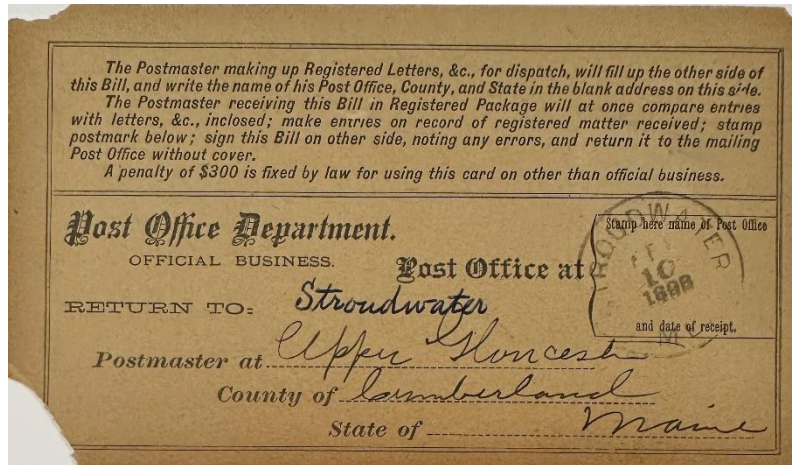 The Postmaster making up Registered Letters, &c., for dispatch, will fill up the other side of
this Bill, and write the name of his Post Office, County, and State in the blank address on this side.
The Postmaster receiving this Bill in Registered Package will at once compare entries
with letters, &c., inclosed; make entries on record of registered matter received; stamp
postmark below; sign this Bill on other side, noting any errors, and return it to the mailing
Post Office without cover.
A penalty of $300 is fixed by law for using this card on other than official business.
Post Office Department.
OFFICIAL BUSINESS.
Post Office at
Stamp here name of Post Office
and date of receipt.
STROUDWATER
FEB
10
1898
ME
RETURN TO:
Stroudwater
Postmaster at Upper Gloucester
County of Cumberland
State of Maine